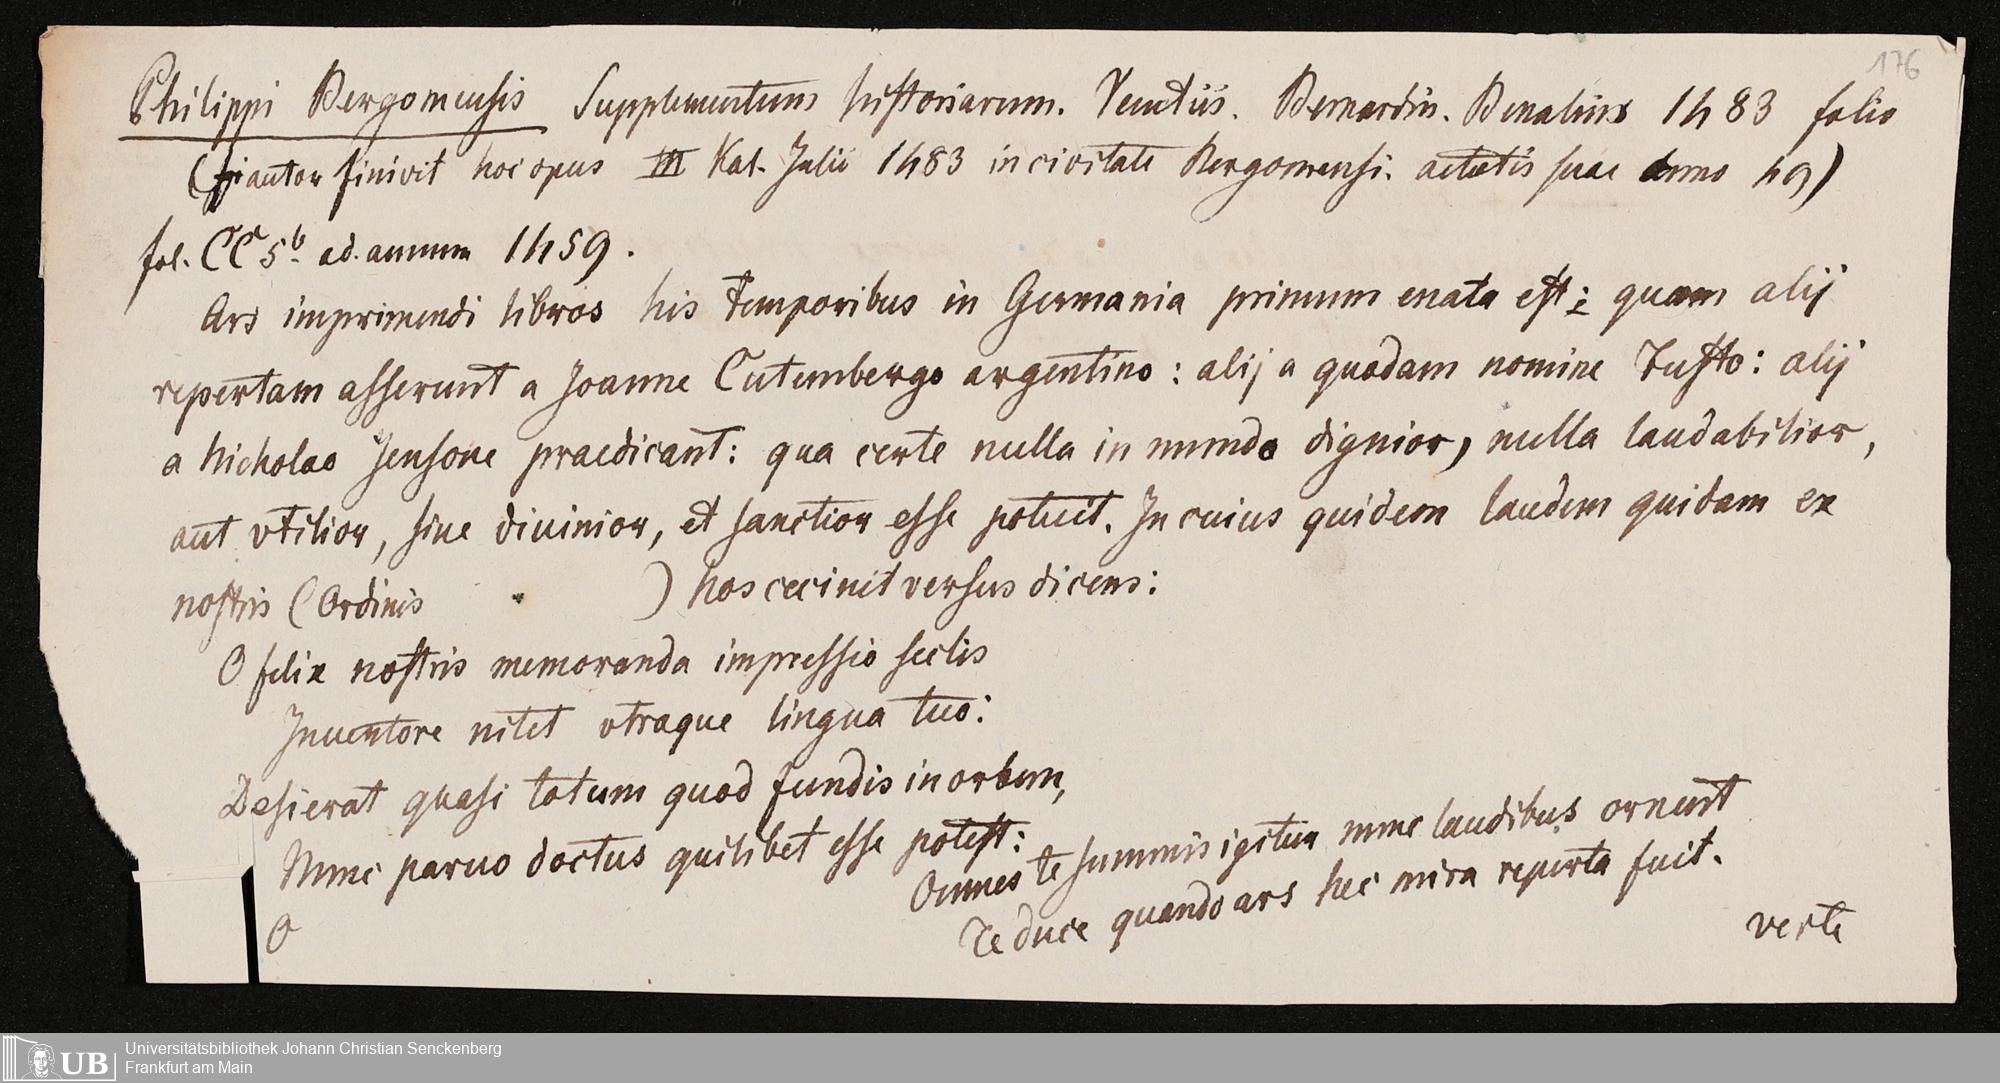 176
Philippi Bergomensis Supplementum historiarum. Venetiis. Bernardin. Benalius 1483 folio
autor finivit hoc opus III Kal. Julii 1483 in civitate Bergomensi. aetatis suae anno 49)
fol. CC 5b ad. annum 1459.
Ars imprimendi libros his temporibus in Germania primum enata est: quam alij
repertam asserunt a Joanne Cutembergo argentino: alij a quodam nomine Fusto: alij
a Nicholao Jensone praedicant: qua certe nulla in mundo dignior, nulla laudabilior,
aut vtilior, siue diuinior, et sanctior esse potuit. In cuius quidem laudem quidam ex
nostris (Ordinis ) hos cecinit versus dicens:
O felix nostris memoranda impressio seclis
Inuentore nitet vtraque lingua tuo:
Desierat quasi totum quod fundis in orbem,
Nunc paruo doctus quilibet esse potest:
Omnes te summis igitur nunc laudibus ornent
Te duce quando ars hec mira reperta fuit.
O
verte
UB Universitätsbibliothek Johann Christian Senckenberg
Frankfurt am Main